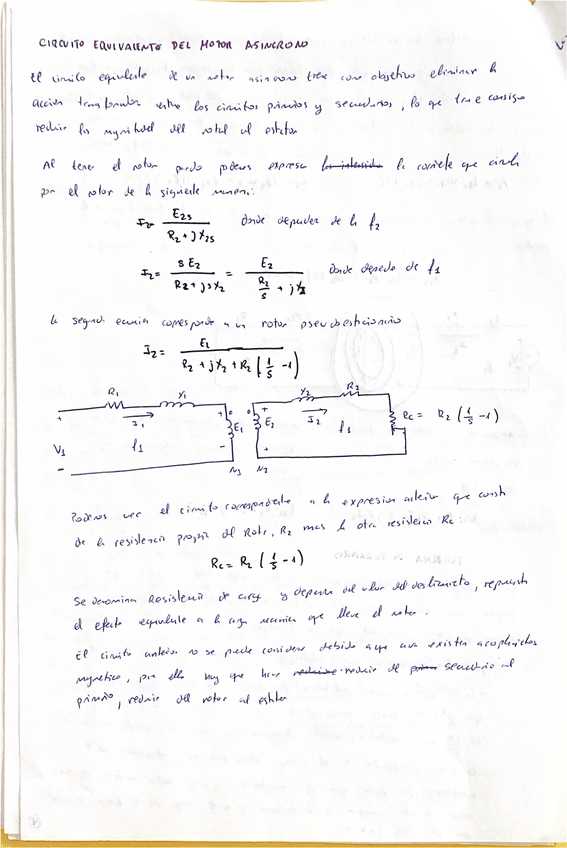 CIRCUITO EQUIVALENTE DEL MOTOR ASINCRONO
El circuito equivalente de un motor asincrono tiene como objetivo eliminar la
accion transformadora entre los circuitos primarios y secundarios, lo que trae consigo
reducir las magnitudes del rotor al estator
Al tener el rotor parado podemos expresar la intensidad la corriente que circula
por el rotor de la siguiente manera:
I2= E2s / R2+jX2s donde dependen de la f2
I2= sE2 / R2+jsX2 = E2 / R2/s + jX2 donde depende de f1
la segunda ecuacion corresponde a un rotor pseudoestacionario
I2= E2 / R2+jX2+R2(1/s -1)
R1 X1 X2 R2
+ I1 + + I2 Rc = R2(1/s -1)
V1 f1 E1 E2 f1
- - +
N1 N2
Podemos ver el circuito correspondiente a la expresion anterior que consta
de la resistencia propia del Rotor, R2 mas la otra resistencia Rc:
Rc= R2(1/s -1)
Se denomina Resistencia de carga y depende del valor del deslizamiento, representa
el efecto equivalente a la carga mecanica que lleve el rotor.
El circuito anterior no se puede considerar debido a que aun existen acoplamientos
magnetico, por ello hay que hacer reducir de secundario al
primario, reducir del rotor al estator